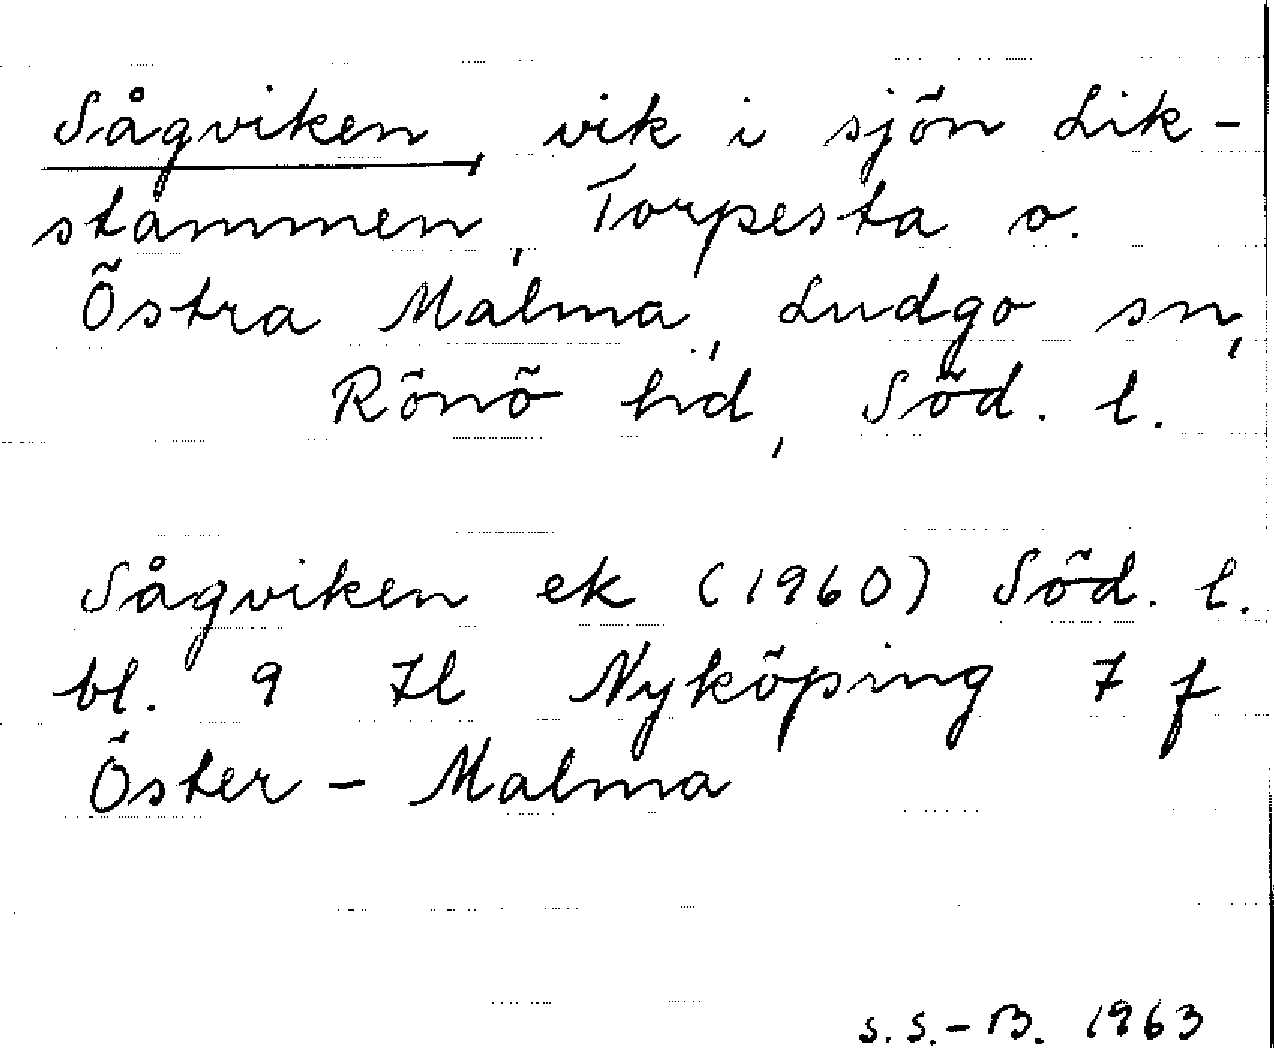 Sågviken, vik i sjön Lik-
stammen, Torpesta o.
Östra Malma, Ludgo sn,
Rönö hd, Söd. l.
Sågviken ek (1960) Söd. l.
bl. 9 Il Nyköping 7 f
Öster - Malma
S.S.-B. 1963